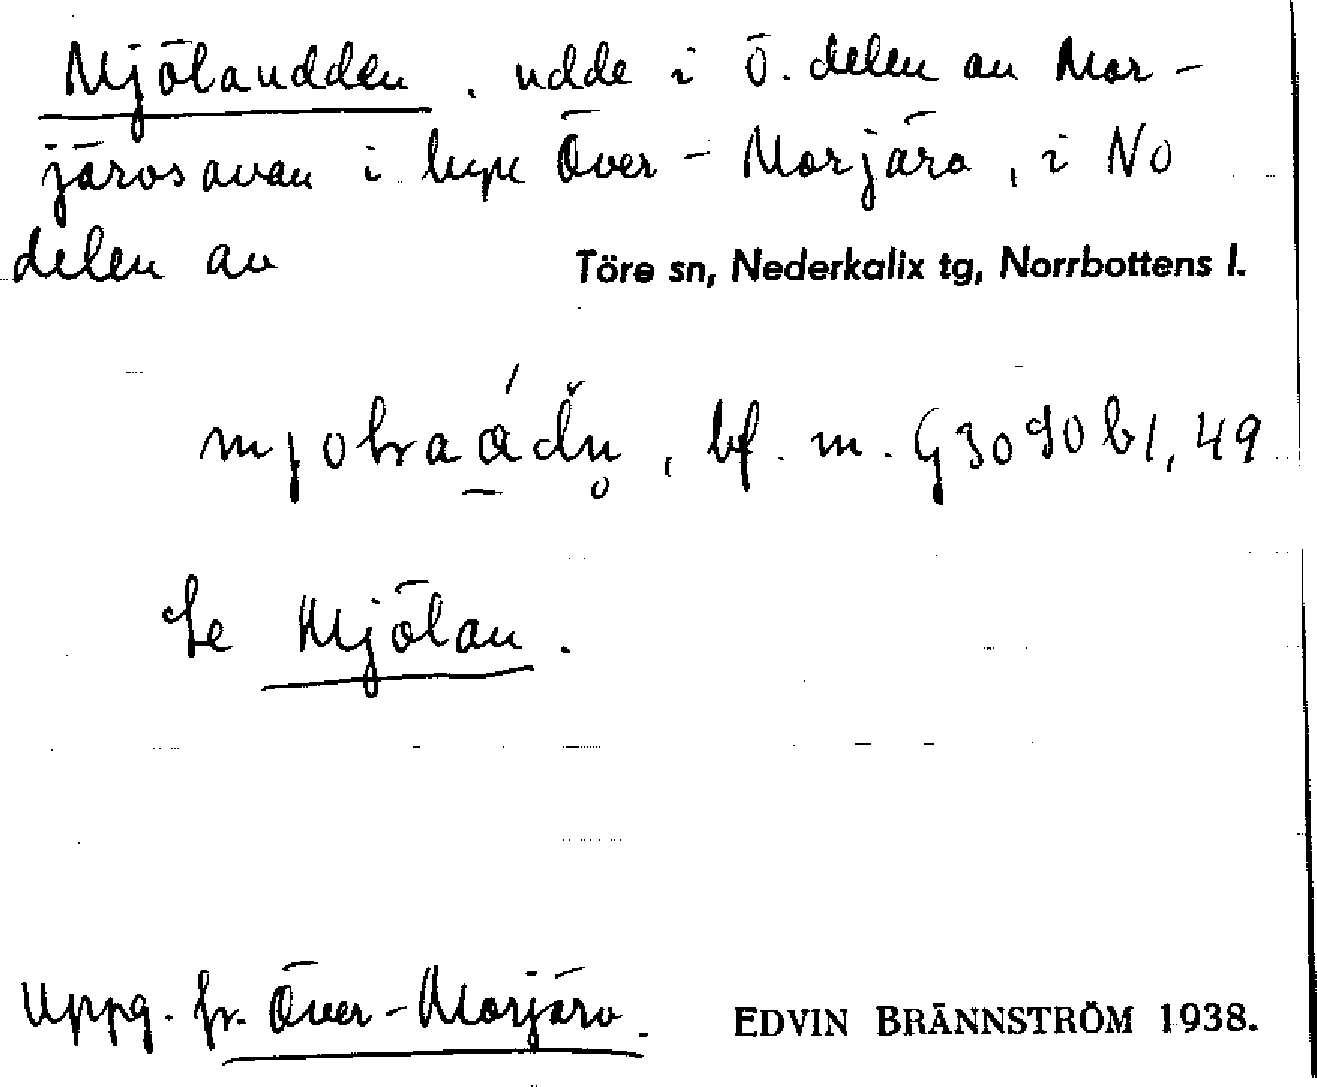 Mjölaudden, udde i Ö. delen av Mor-
järvsavan i byn Över-Morjärv, i NO
delen av Töre sn, Nederkalix tg, Norrbottens l.
bf. m. G3090 bl, 49
Se Mjölan.
Uppg. fr. Över-Morjärv. EDVIN BRÄNNSTRÖM 1938.